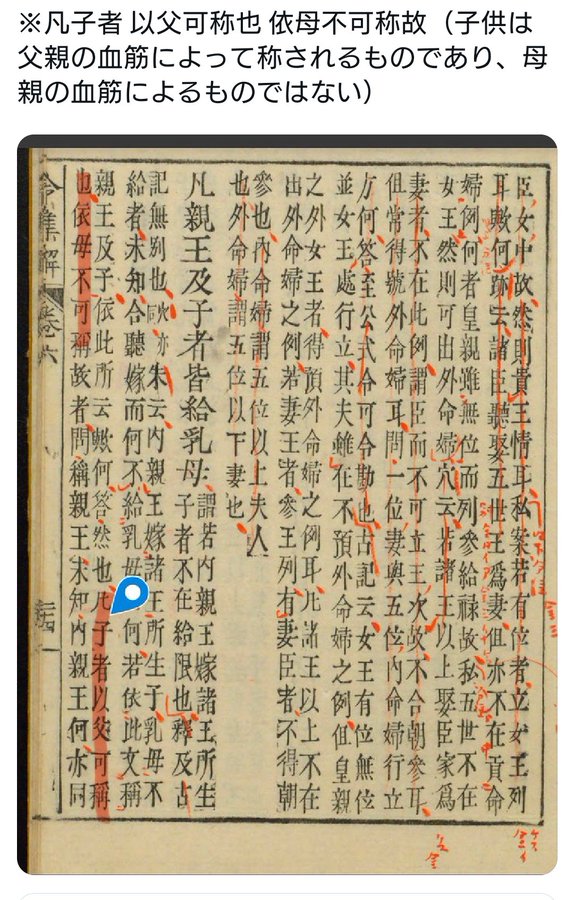 ※凡子者 以父可称也 依母不可称故（子供は
父親の血筋によって称されるものであり、母
親の血筋によるものではない）
臣女中故然則貴王情耳私案若有位者立女王列
耳歟何跡云諸臣聽娶五世王爲妻但亦不在貢命
婦例何者皇親雖無位而列參給禄故私五世不在
女王然則可出外命婦穴云若諸王以上娶臣家爲
妻者不在此例謂臣而不可立王次故不合朝參耳
但常得號外命婦耳問一位妻與五位內命婦行立
方何答至公式令可令勘也古記云女王有位無位
並女王處行立其夫雖在不預外命婦之例但皇親
之外女王者得預外命婦之例耳凡諸王以上不在
出外命婦之例若妻王者參王列有妻臣者不得朝
參也內命婦謂五位以上夫人
也外命婦謂五位以下妻也
凡親王及子者皆給乳母謂若內親王嫁諸王所生
子者不在給限也釋及古
記無別也歟亦朱云內親王嫁諸王所生子乳母不
給者未知合聽嫁而何不給乳母何若依此文稱
親王及子依此所云歟何答然也凡子者以父可稱
也依母不可稱故者問稱親王未知內親王何亦同
令集解 卷六